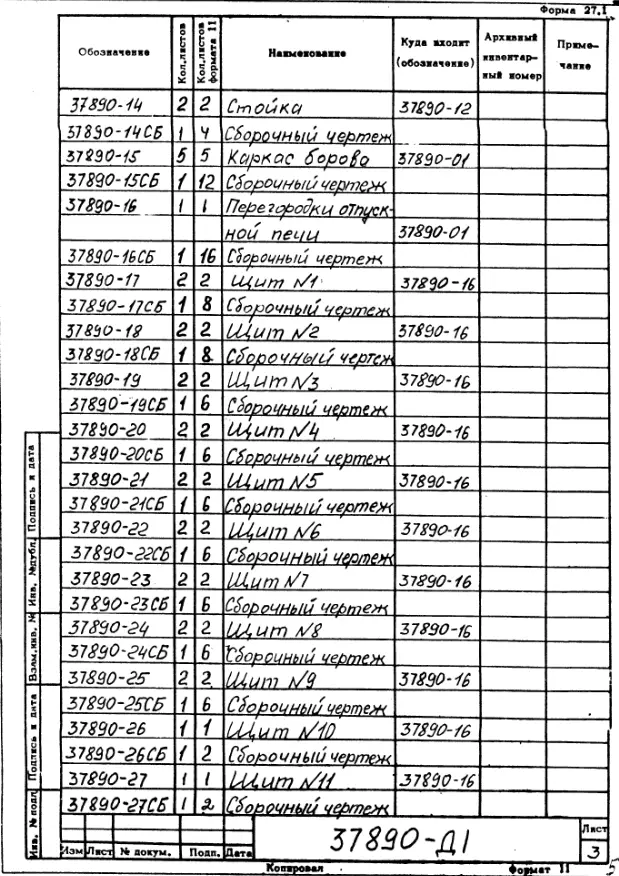 Форма 27.1
Обозначение Кол.листов Кол.листов формата 11 Наименование Куда входит (обозначение) Архивный инвентарный номер Примечание
37890-14 2 2 Стойка 37890-12
37890-14СБ 1 4 Сборочный чертеж
37890-15 5 5 Каркас борова 37890-01
37890-15СБ 1 12 Сборочный чертеж
37890-16 1 1 Перегородки отпуск-
ной печи 37890-01
37890-16СБ 1 16 Сборочный чертеж
37890-17 2 2 Щит №1 37890-16
37890-17СБ 1 8 Сборочный чертеж
37890-18 2 2 Щит №2 37890-16
37890-18СБ 1 8 Сборочный чертеж
37890-19 2 2 Щит №3 37890-16
37890-19СБ 1 6 Сборочный чертеж
37890-20 2 2 Щит №4 37890-16
37890-20СБ 1 6 Сборочный чертеж
37890-21 2 2 Щит №5 37890-16
37890-21СБ 1 6 Сборочный чертеж
37890-22 2 2 Щит №6 37890-16
37890-22СБ 1 6 Сборочный чертеж
37890-23 2 2 Щит №7 37890-16
37890-23СБ 1 6 Сборочный чертеж
37890-24 2 2 Щит №8 37890-16
37890-24СБ 1 6 Сборочный чертеж
37890-25 2 2 Щит №9 37890-16
37890-25СБ 1 6 Сборочный чертеж
37890-26 1 1 Щит №10 37890-16
37890-26СБ 1 2 Сборочный чертеж
37890-27 1 1 Щит №11 37890-16
37890-27СБ 1 2 Сборочный чертеж
Подпись и дата
Инв. №дубл.
Взам.инв. №
Подпись и дата
Инв. № подл.
37890-Д1
Лист
3
Изм Лист № докум. Подп. Дата
Копировал Формат 11
5